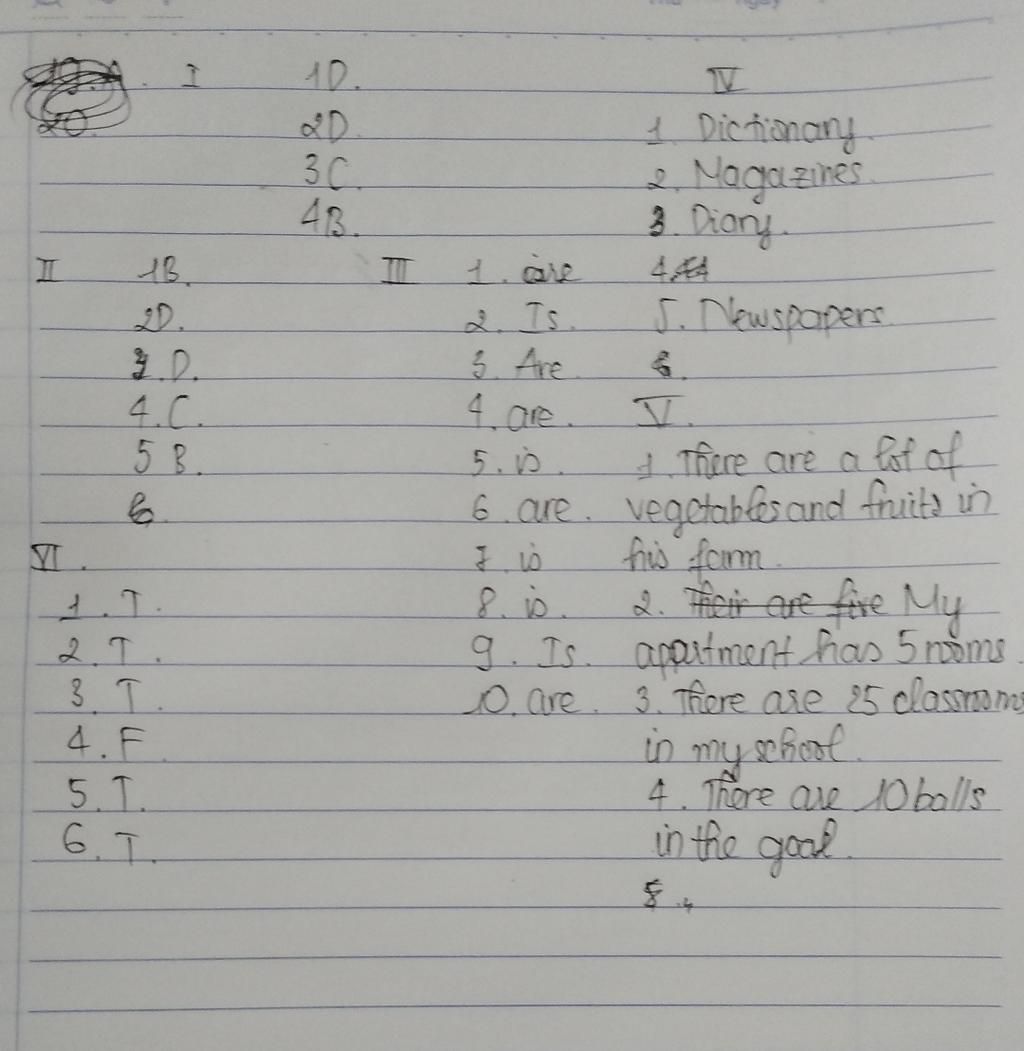 I 1D.
2D
3C.
4B.
II 1B.
2D.
3.D.
4.C.
5 B.
6
III 1. are
2. Is.
3. Are
4. are.
5. is.
6. are.
7. is
8. is.
9. Is.
10. are.
IV
1. Dictionary.
2. Magazines.
3. Diary.
4.
5. Newspapers.
6.
V.
1. There are a lot of
vegetables and fruits in
his farm.
2. Their are five My
apartment has 5 rooms.
3. There are 25 classrooms
in my school.
4. There are 10 balls
in the goal.
5.
VI.
1. T.
2. T.
3. T.
4. F
5. T.
6. T.